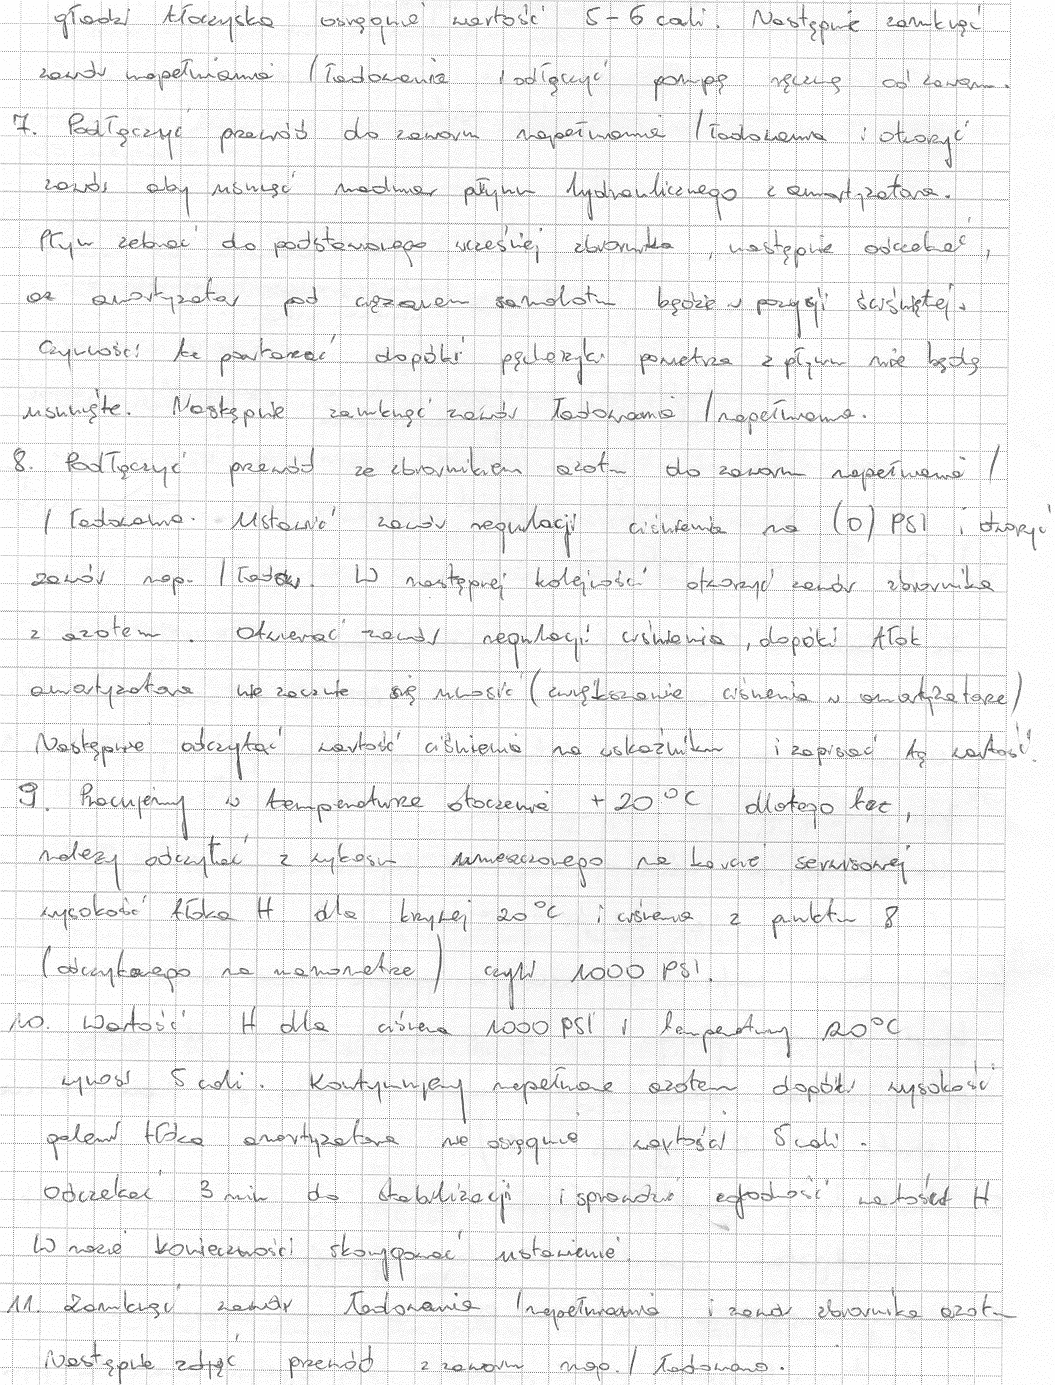 gładzi tłoczyska osiągnie wartość 5-6 cali. Następnie zamknąć
zawór napełniania /ładowania i odłączyć pompę ręczną od zaworu.
7. Podłączyć przewód do zaworu napełniania /ładowania i otworzyć
zawór aby usunąć nadmiar płynu hydraulicznego z amortyzatora.
Płyn zebrać do podstawionego wcześniej zbiornika, następnie odczekać,
aż amortyzator pod ciężarem samolotu będzie w pozycji ściśniętej.
Czynność tę powtarzać dopóki pęcherzyki powietrza z płynu nie będą
usunięte. Następnie zamknąć zawór ładowania /napełniania.
8. Podłączyć przewód ze zbiornikiem azotu do zaworu napełniania /
/ładowania. Ustawić zawór regulacji ciśnienia na (0) PSI i otworzyć
zawór nap. /ładow. W następnej kolejności otworzyć zawór zbiornika
z azotem. Otwierać zawór regulacji ciśnienia, dopóki tłok
amortyzatora nie zacznie się unosić (zwiększanie ciśnienia w amortyzatorze)
Następnie odczytać wartość ciśnienia na wskaźniku i zapisać tą wartość.
9. Pracujemy w temperaturze otoczenia +20°C dlatego też,
należy odczytać z wykresu umieszczonego na karcie serwisowej
wysokość tłoka H dla krzywej 20°C i ciśnienia z punktu 8
(odczytanego na manometrze) czyli 1000 PSI.
10. Wartość H dla ciśnienia 1000 PSI i temperatury 20°C
wynosi 5 cali. Kontynuujemy napełnianie azotem dopóki wysokość
goleni tłoka amortyzatora nie osiągnie wartości 5 cali.
Odczekać 3 min do stabilizacji i sprawdzić zgodność wartości H
W razie konieczności skorygować ustawienie.
11. Zamknąć zawór ładowania /napełniania i zawór zbiornika azotu
Następnie zdjąć przewód z zaworu nap. /ładowania.